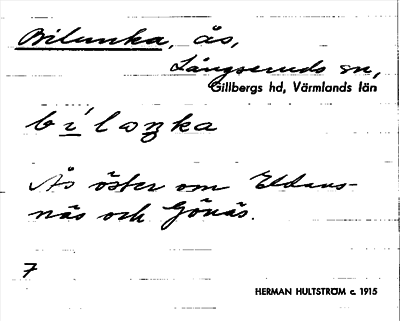 Bilunka, ås,
Långseruds sn,
Gillbergs hd, Värmlands län
bi´laŋka
Ås öster om Eldans-
näs och Gönäs.
7
HERMAN HULTSTRÖM c. 1915